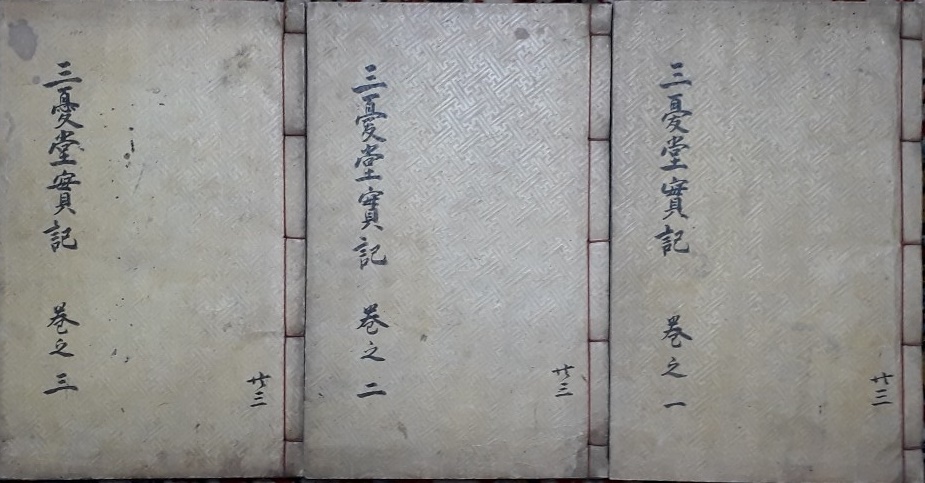 三憂堂實記 卷之一
廿三
三憂堂實記 卷之二
廿三
三憂堂實記 卷之三
廿三